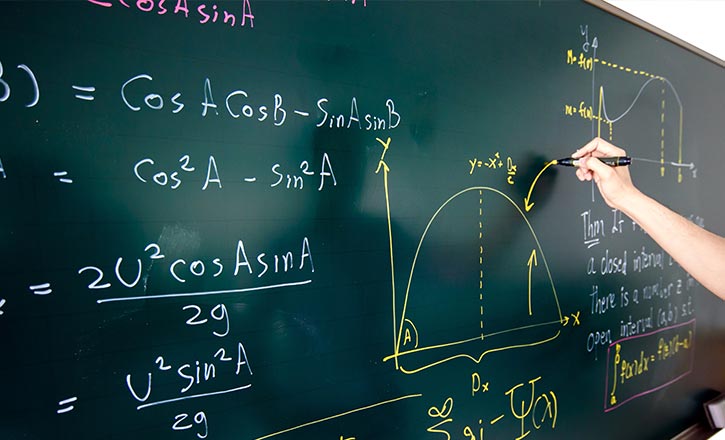 2cosAsinA
B) = CosACosB - SinAsinB
A = Cos²A - Sin²A
= 2U²cosAsinA
2g
= U²sin²A
2g
y
y=-x²+Dx/2
A
x
Dx
∞
Ψ(λ)
y
M=f(
m=f(
x
Thm If
a closed interval
there is a number z
open interval (a,b) s.t.
∫ f(x)dx = f(z)(b-a)